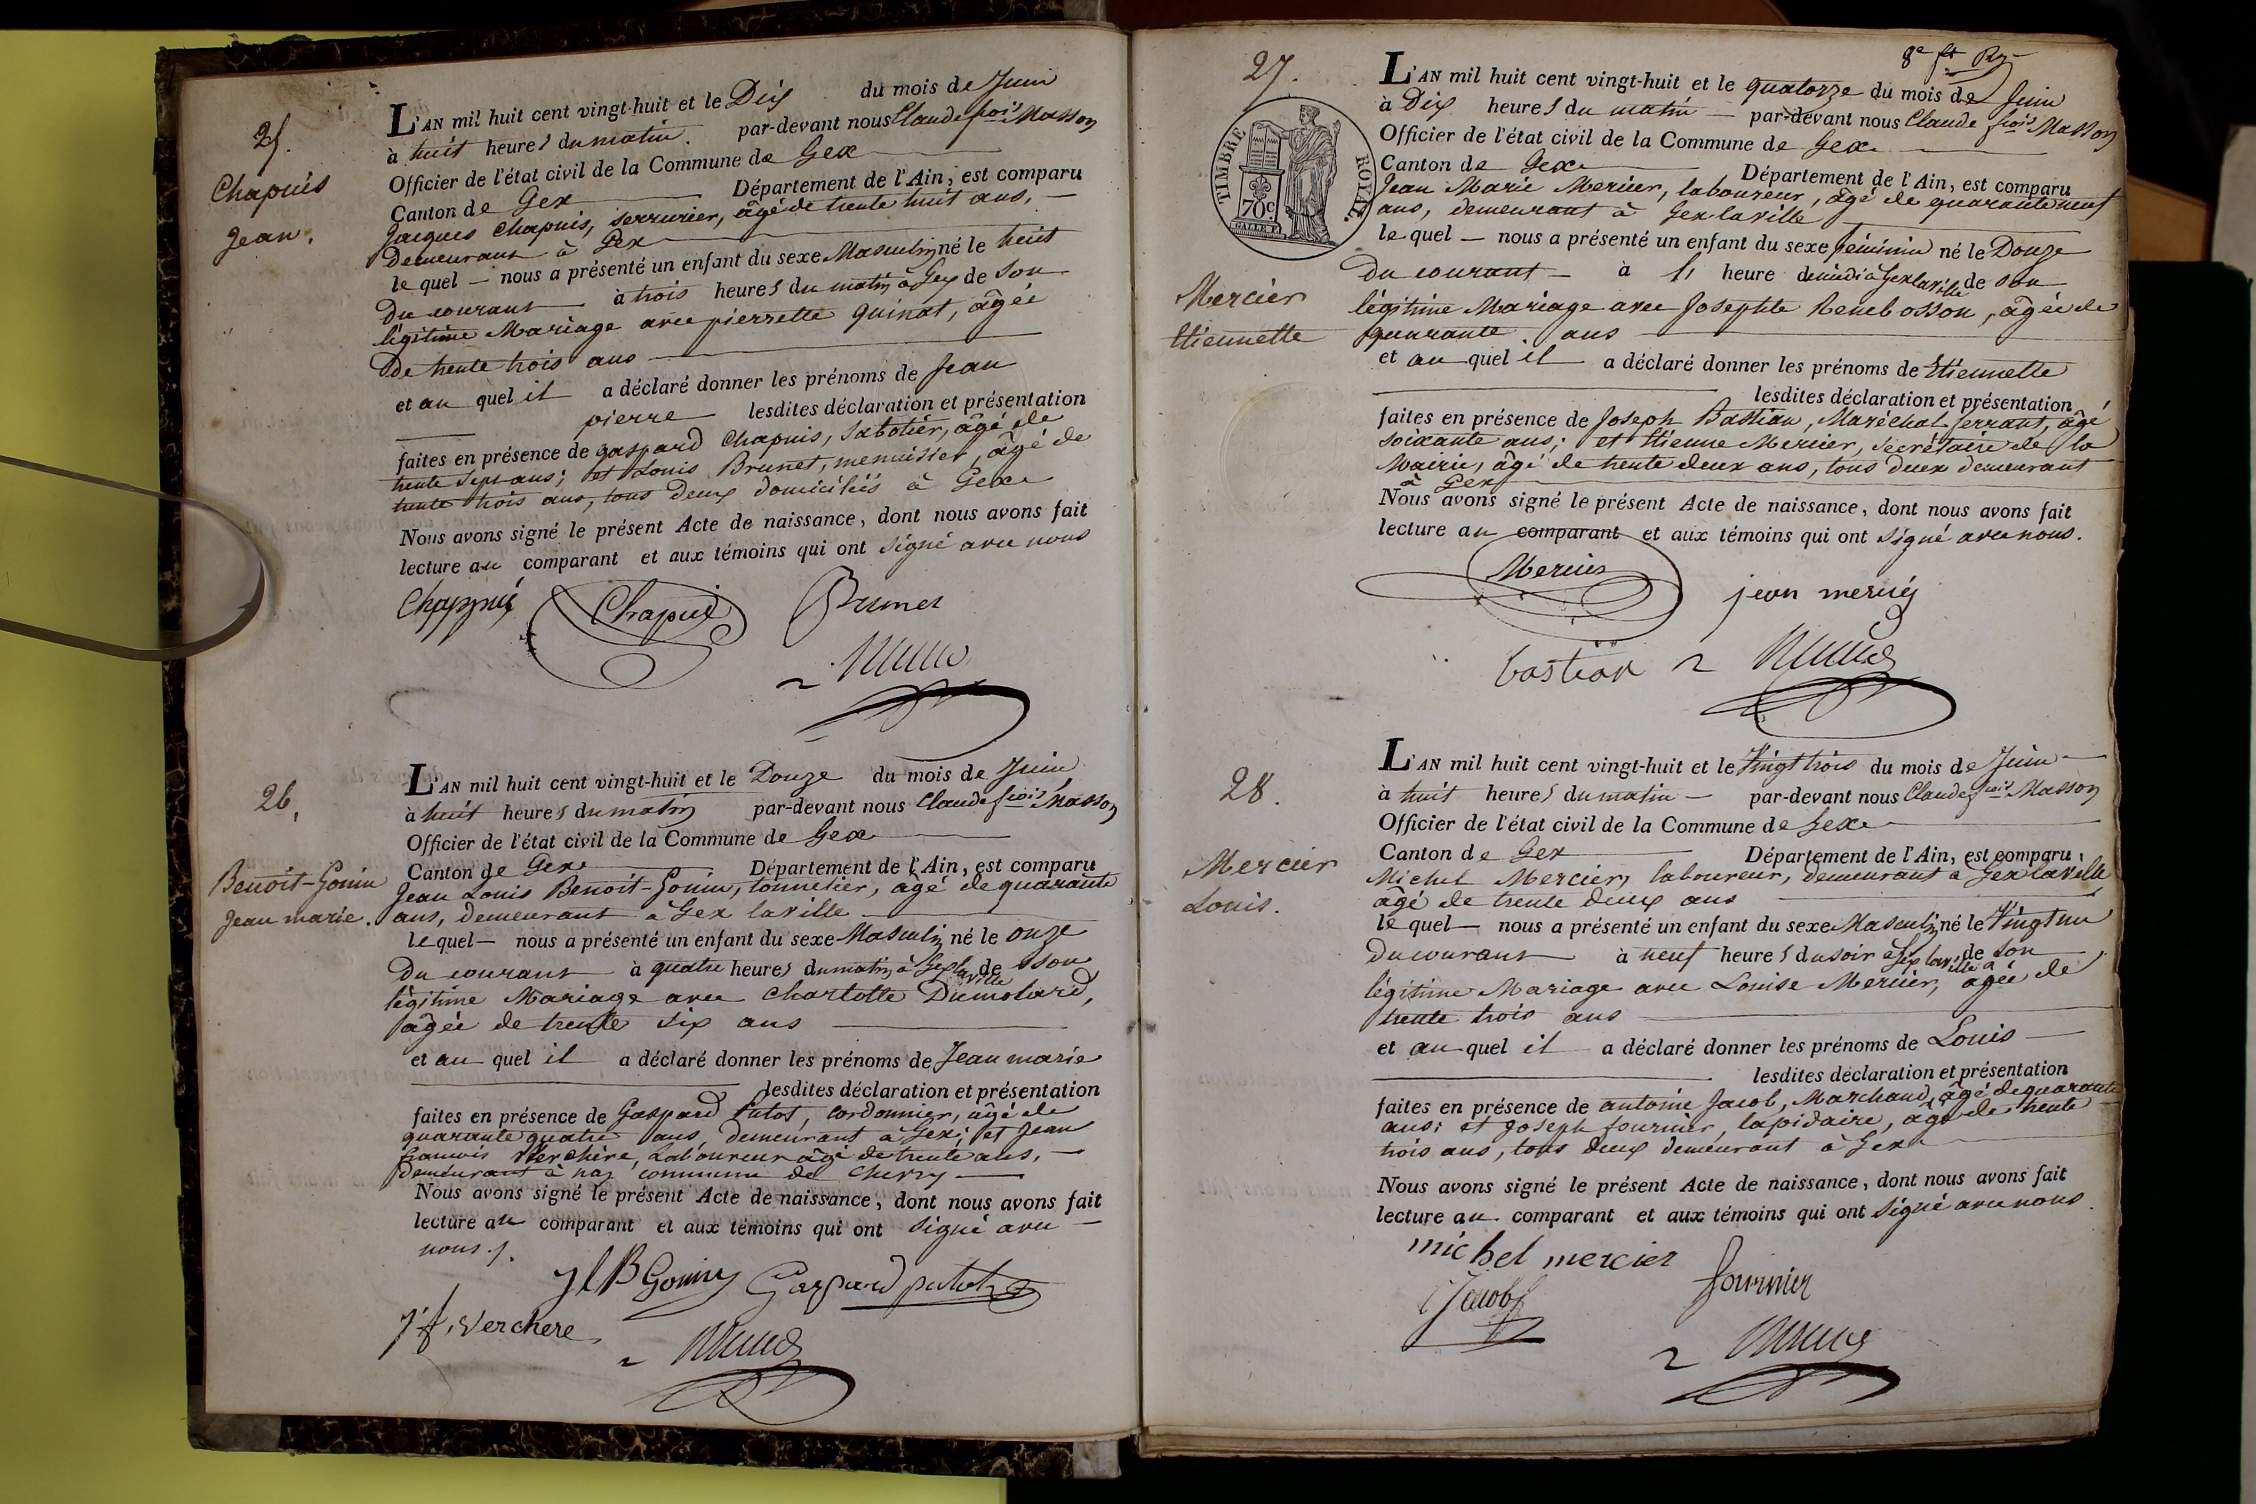 25.
Chapuis
Jean.
L'AN mil huit cent vingt-huit et le Dix du mois de Juin
à huit heures du matin. par-devant nous Claude frois Masson
Officier de l'état civil de la Commune de Gex
Canton de Gex Département de l'Ain, est comparu
Jacques Chapuis, serrurier, âgé de trente huit ans,
demeurant à Gex
lequel nous a présenté un enfant du sexe Masculin né le huit
du courant à trois heures du matin à Gex de son
légitime Mariage avec pierrette quinat, âgée
de trente trois ans
et au quel il a déclaré donner les prénoms de Jean
pierre lesdites déclaration et présentation
faites en présence de gaspard Chapuis, Sabotier, âgé de
trente sept ans; et Louis Brunet, menuisier, âgé de
trente trois ans, tous deux domiciliés à Gex
Nous avons signé le présent Acte de naissance, dont nous avons fait
lecture au comparant et aux témoins qui ont signé avec nous
Chappuis Chapuis Brunet
26.
Benoit-Gonin
Jean marie.
L'AN mil huit cent vingt-huit et le Douze du mois de Juin
à huit heures du matin par-devant nous Claude frois Masson
Officier de l'état civil de la Commune de Gex
Canton de Gex Département de l'Ain, est comparu
Jean Louis Benoit-Gonin, tonnelier, âgé de quarante
ans, demeurant à Gex laville
lequel nous a présenté un enfant du sexe Masculin né le onze
du courant à quatre heures du matin à Gex laville de sson
légitime Mariage avec Charlotte Dumolard,
âgée de trente six ans
et au quel il a déclaré donner les prénoms de Jean marie
lesdites déclaration et présentation
faites en présence de Gaspard Putot, cordonnier, âgé de
quarante quatre ans, demeurant à Gex; et Jean
francois Verchère, Laboureur âgé de trente ans,
demeurant à naz commune de Chevry
Nous avons signé le présent Acte de naissance, dont nous avons fait
lecture au comparant et aux témoins qui ont signé avec
nous.
J L B Gonin Gaspard putot
J f. verchere
8e ft
27.
TIMBRE ROYAL
70c
Mercier
Etiennette
L'AN mil huit cent vingt-huit et le quatorze du mois de Juin
à Dix heures du matin par-devant nous Claude frois Masson
Officier de l'état civil de la Commune de Gex
Canton de Gex Département de l'Ain, est comparu
Jean Marie Mercier, laboureur, âgé de quarante neuf
ans, demeurant à Gex laville
lequel nous a présenté un enfant du sexe féminin né le Douze
du courant à heure de midi à Gex laville de son
légitime Mariage avec Josephte Renebosson, âgée de
quarante ans
et au quel il a déclaré donner les prénoms de Etiennette
lesdites déclaration et présentation
faites en présence de Joseph Bastian, Maréchal ferrant, âgé
soixante ans; et Etienne Mercier, Secrétaire de la
Mairie, âgé de trente deux ans, tous deux demeurant
à Gex
Nous avons signé le présent Acte de naissance, dont nous avons fait
lecture au comparant et aux témoins qui ont signé avec nous.
Mercier jean merciej
bastian
28.
Mercier
Louis.
L'AN mil huit cent vingt-huit et le Vingt trois du mois de Juin
à huit heures du matin par-devant nous Claude frois Masson
Officier de l'état civil de la Commune de Gex
Canton de Gex Département de l'Ain, est comparu
Michel Mercier, laboureur, demeurant à Gex laville
âgé de trente deux ans
lequel nous a présenté un enfant du sexe Masculin né le Vingt un
du courant à neuf heures du soir à Gex laville de son
légitime Mariage avec Louise Mercier, âgée de
trente trois ans
et au quel il a déclaré donner les prénoms de Louis
lesdites déclaration et présentation
faites en présence de antoine Jacob, Marchand, âgé de quarante
ans; et Joseph fournier, lapidaire, âgé de trente
trois ans, tous deux demeurant à Gex
Nous avons signé le présent Acte de naissance, dont nous avons fait
lecture au comparant et aux témoins qui ont signé avec nous.
michel mercier
Jacob fournier